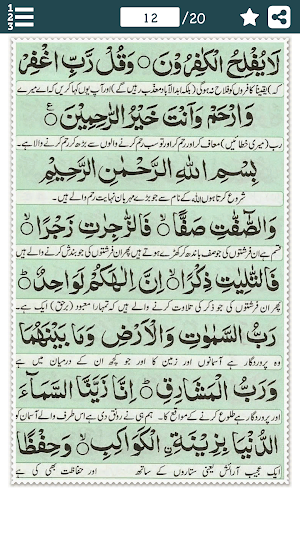 1
2
3
12 /20
لَا يُفْلِحُ الْكٰفِرُوْنَ ۝ وَقُلْ رَّبِّ اغْفِرْ
وَارْحَمْ وَاَنْتَ خَيْرُ الرّٰحِمِيْنَ ۝
رب (میری خطائیں) معاف کر اور رحم کر اور تو سب رحم کرنے والوں سے بڑھ کر رحم کرنے والا ہے۔
بِسْمِ اللهِ الرَّحْمٰنِ الرَّحِيْمِ
شروع کرتا ہوں اللہ کے نام سے جو بڑے مہربان نہایت رحم والے ہیں۔
وَالصّٰٓفّٰتِ صَفًّا ۝ فَالزّٰجِرٰتِ زَجْرًا ۝
قسم ہے ان فرشتوں کی جو صف باندھ کر کھڑے ہوتے ہیں پھر ان فرشتوں کی جو بندش کرنے والے ہیں
فَالتّٰلِيٰتِ ذِكْرًا ۝ اِنَّ اِلٰهَكُمْ لَوَاحِدٌ ۝
پھر ان فرشتوں کی جو ذکر کی تلاوت کرنے والے ہیں کہ تمہارا معبود (برحق) ایک ہے۔
رَبُّ السَّمٰوٰتِ وَالْاَرْضِ وَمَا بَيْنَهُمَا
وہ پروردگار ہے آسمانوں اور زمین کا اور جو کچھ ان کے درمیان میں ہے
وَرَبُّ الْمَشَارِقِ ۝ اِنَّا زَيَّنَّا السَّمَآءَ
اور پروردگار ہے طلوع کرنے کے مواقع کا۔ ہم ہی نے رونق دی ہے اس طرف والے آسمان کو
الدُّنْيَا بِزِيْنَةِ ࣙالْكَوَاكِبِ ۝ وَحِفْظًا
ایک عجیب آرائش یعنی ستاروں کے ساتھ اور حفاظت بھی کی ہے